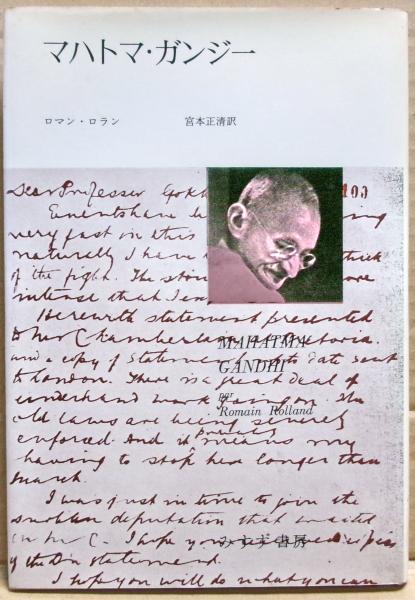 マハトマ・ガンジー
ロマン・ロラン 宮本正清訳
Dear Professor Gokh
Events have
very fast in this
naturally I have thick
of the fight. The
intense that I
Herewith statement presented
to Mr Chamberlain at Pretoria
and a copy of statement up to date sent
to London. There is a great deal of
underhand work going on. The
old laws are being severely
enforced. And it probably means my
having to stop here longer than
March.
I was just in time to join the
deputation that waited
on Mr C. I hope you
of the statement.
I hope you will do what you can
MAHATMA
GANDHI
par
Romain Rolland
みすず書房